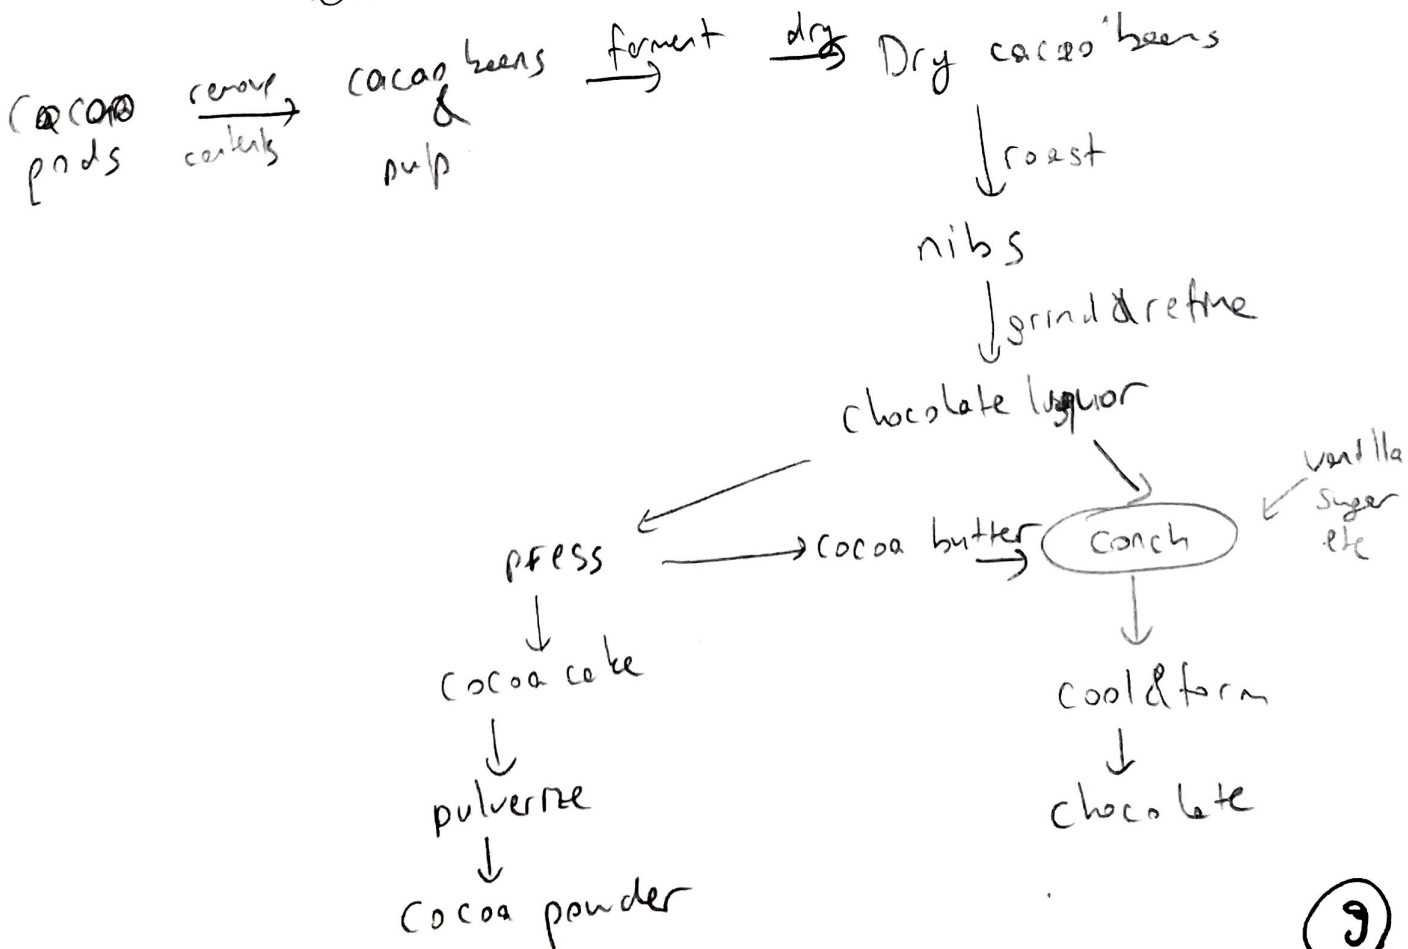 Cacao
pods
remove
contents
cacao beans
&
pulp
ferment
dry
Dry cacao beans
roast
nibs
grind & refine
chocolate liquor
press
cocoa butter
conch
vanilla
sugar
etc
cocoa cake
cool & form
pulverize
chocolate
cocoa powder
9